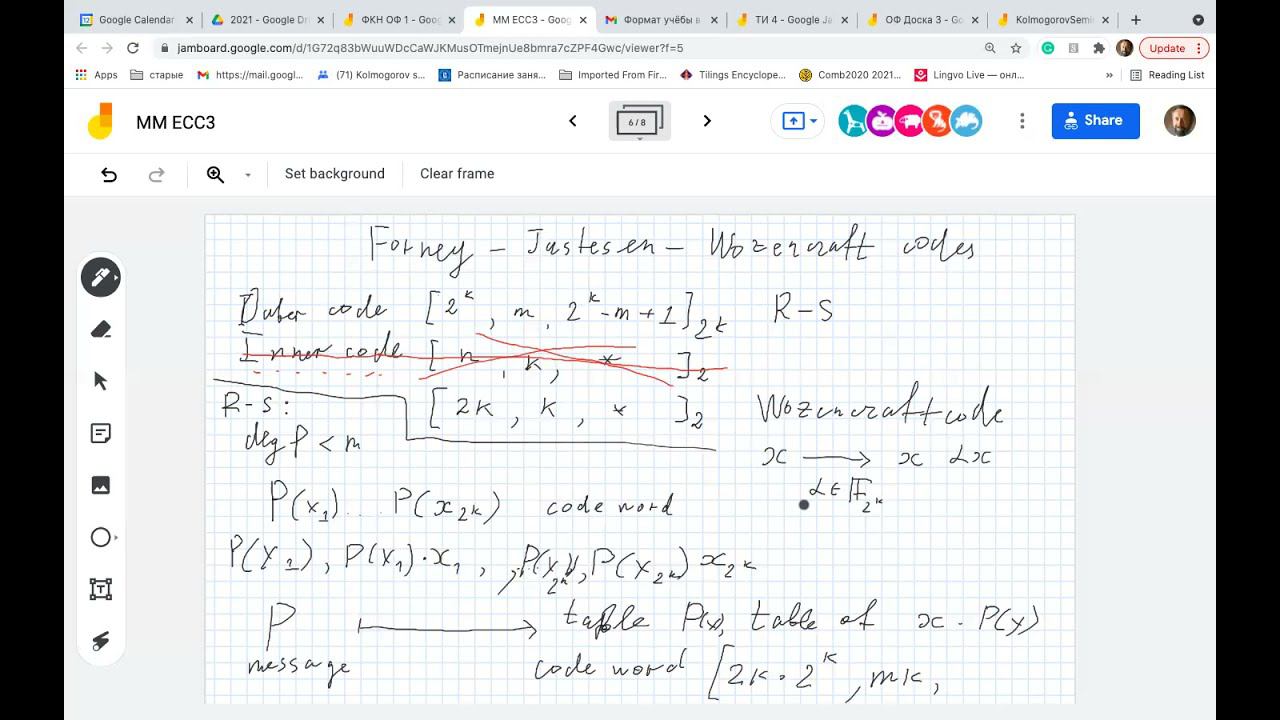 Google Calendar
2021 - Google Dr
ФКН ОФ 1 - Goo
MM ECC3 - Goog
Формат учёбы в
ТИ 4 - Google Ja
ОФ Доска 3 - Go
KolmogorovSemi
jamboard.google.com/d/1G72q83bWuuWDcCaWJKMusOTmejnUe8bmra7cZPF4Gwc/viewer?f=5
Update
Apps
старые
https://mail.googl...
(71) Kolmogorov s...
Расписание заня...
Imported From Fir...
Tilings Encyclope...
Comb2020 2021...
Lingvo Live — онл...
»
Reading List
MM ECC3
6 / 8
Share
Set background
Clear frame
Forney - Justesen - Wozencraft codes
Outer code [2^k, m, 2^k-m+1]_{2^k} R-S
Inner code [n, k, *]_2
R-S: [2k, k, *]_2 Wozencraft code
deg P < m
x → x αx
α∈𝔽_{2^k}
P(x_1) ... P(x_{2^k}) code word
P(x_1), P(x_1)·x_1, ..., P(x_{2^k}), P(x_{2^k}) x_{2^k}
P ↦ table P(x), table of x·P(x)
message code word [2k·2^k, mk,